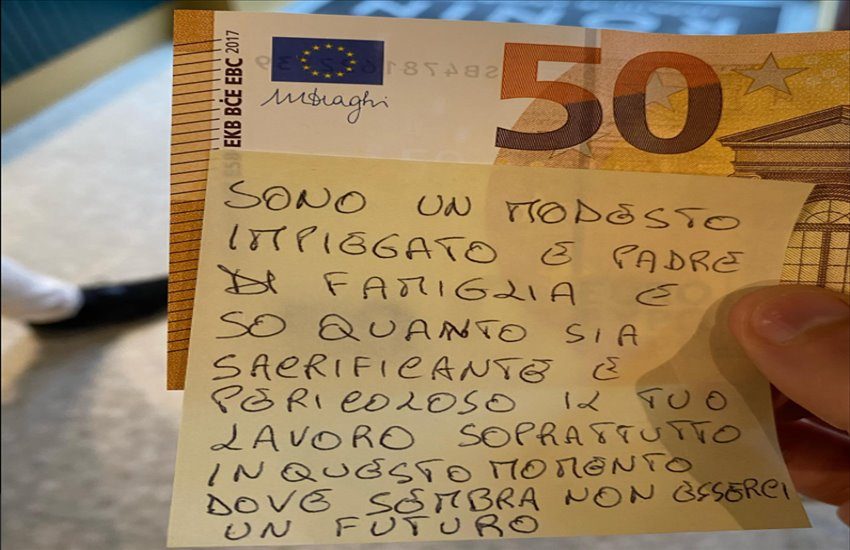 EKB BĊE EBC 2017
MDraghi
50
SONO UN MODESTO
IMPIEGGATO E PADRE
DI FAMIGLIA E
SO QUANTO SIA
SACRIFICANTE E
PERICOLOSO IL TUO
LAVORO SOPRATTUTTO
IN QUESTO MOMENTO
DOVE SEMBRA NON ESSERCI
UN FUTURO